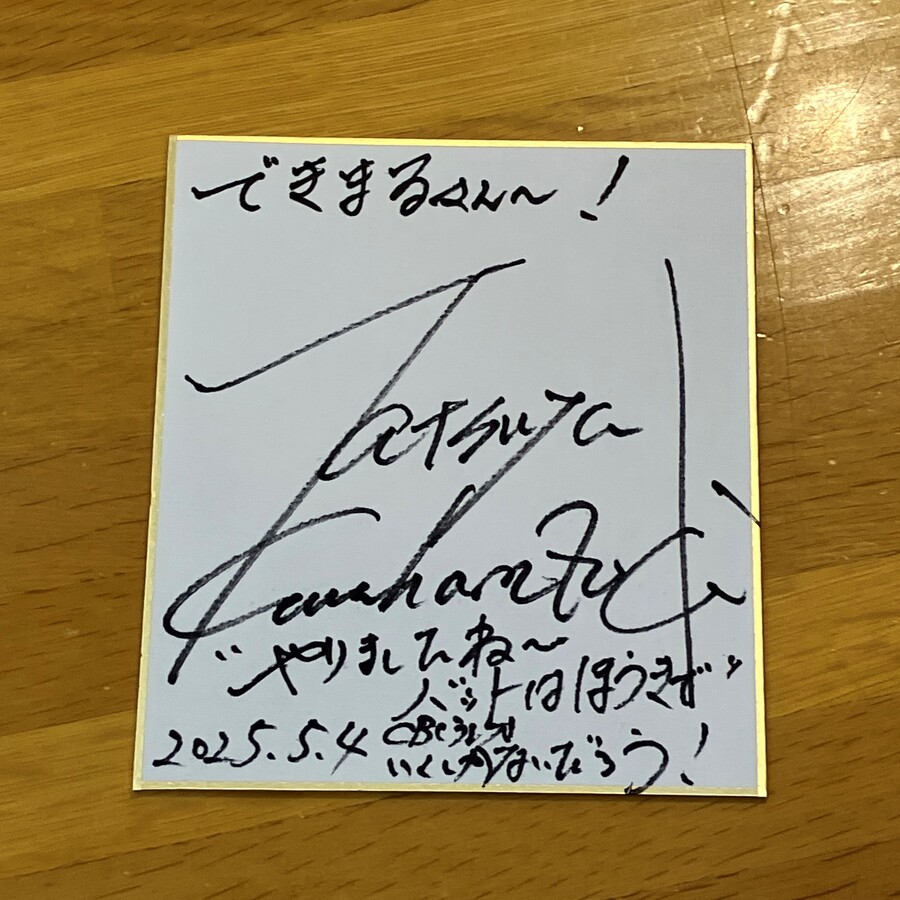 できまるさん〜!
Tatsuya
Kawahara
"やりましたね〜
バットはほうきず"
2025.5.4
いくしかないだろう!